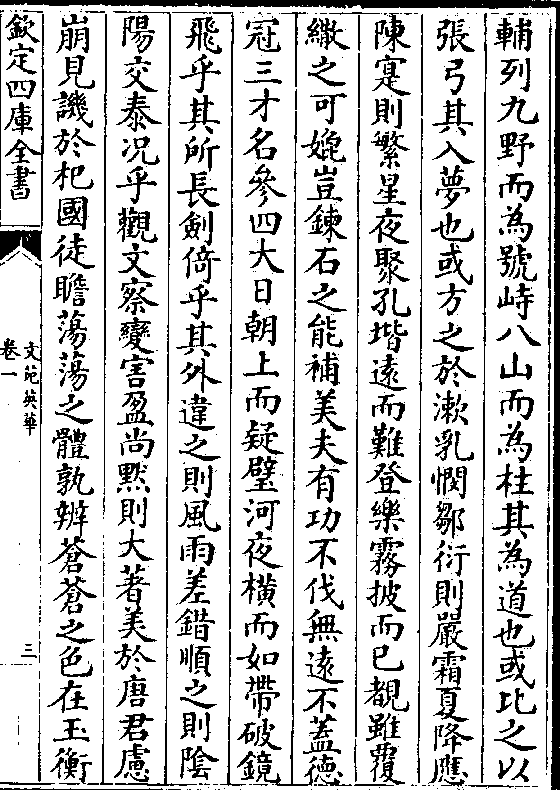 輔列九野而為號峙八山而為柱其為道也或比之以
張弓其入夢也或方之於漱乳憫鄒衍則嚴霜夏降應
陳寔則繁星夜聚孔堦遠而難登樂霧披而已覩雖覆
繖之可媲豈鍊石之能補美夫有功不伐無遠不蓋德
冠三才名參四大日朝上而疑璧河夜橫而如帶破鏡
飛乎其所長劍倚乎其外違之則風雨差錯順之則陰
陽交泰况乎觀文察變害盈尚黙則大著美於唐君慮
崩見譏於杞國徒瞻蕩蕩之體孰辨蒼蒼之色在玉衡
欽定四庫全書
文苑英華
卷一
三